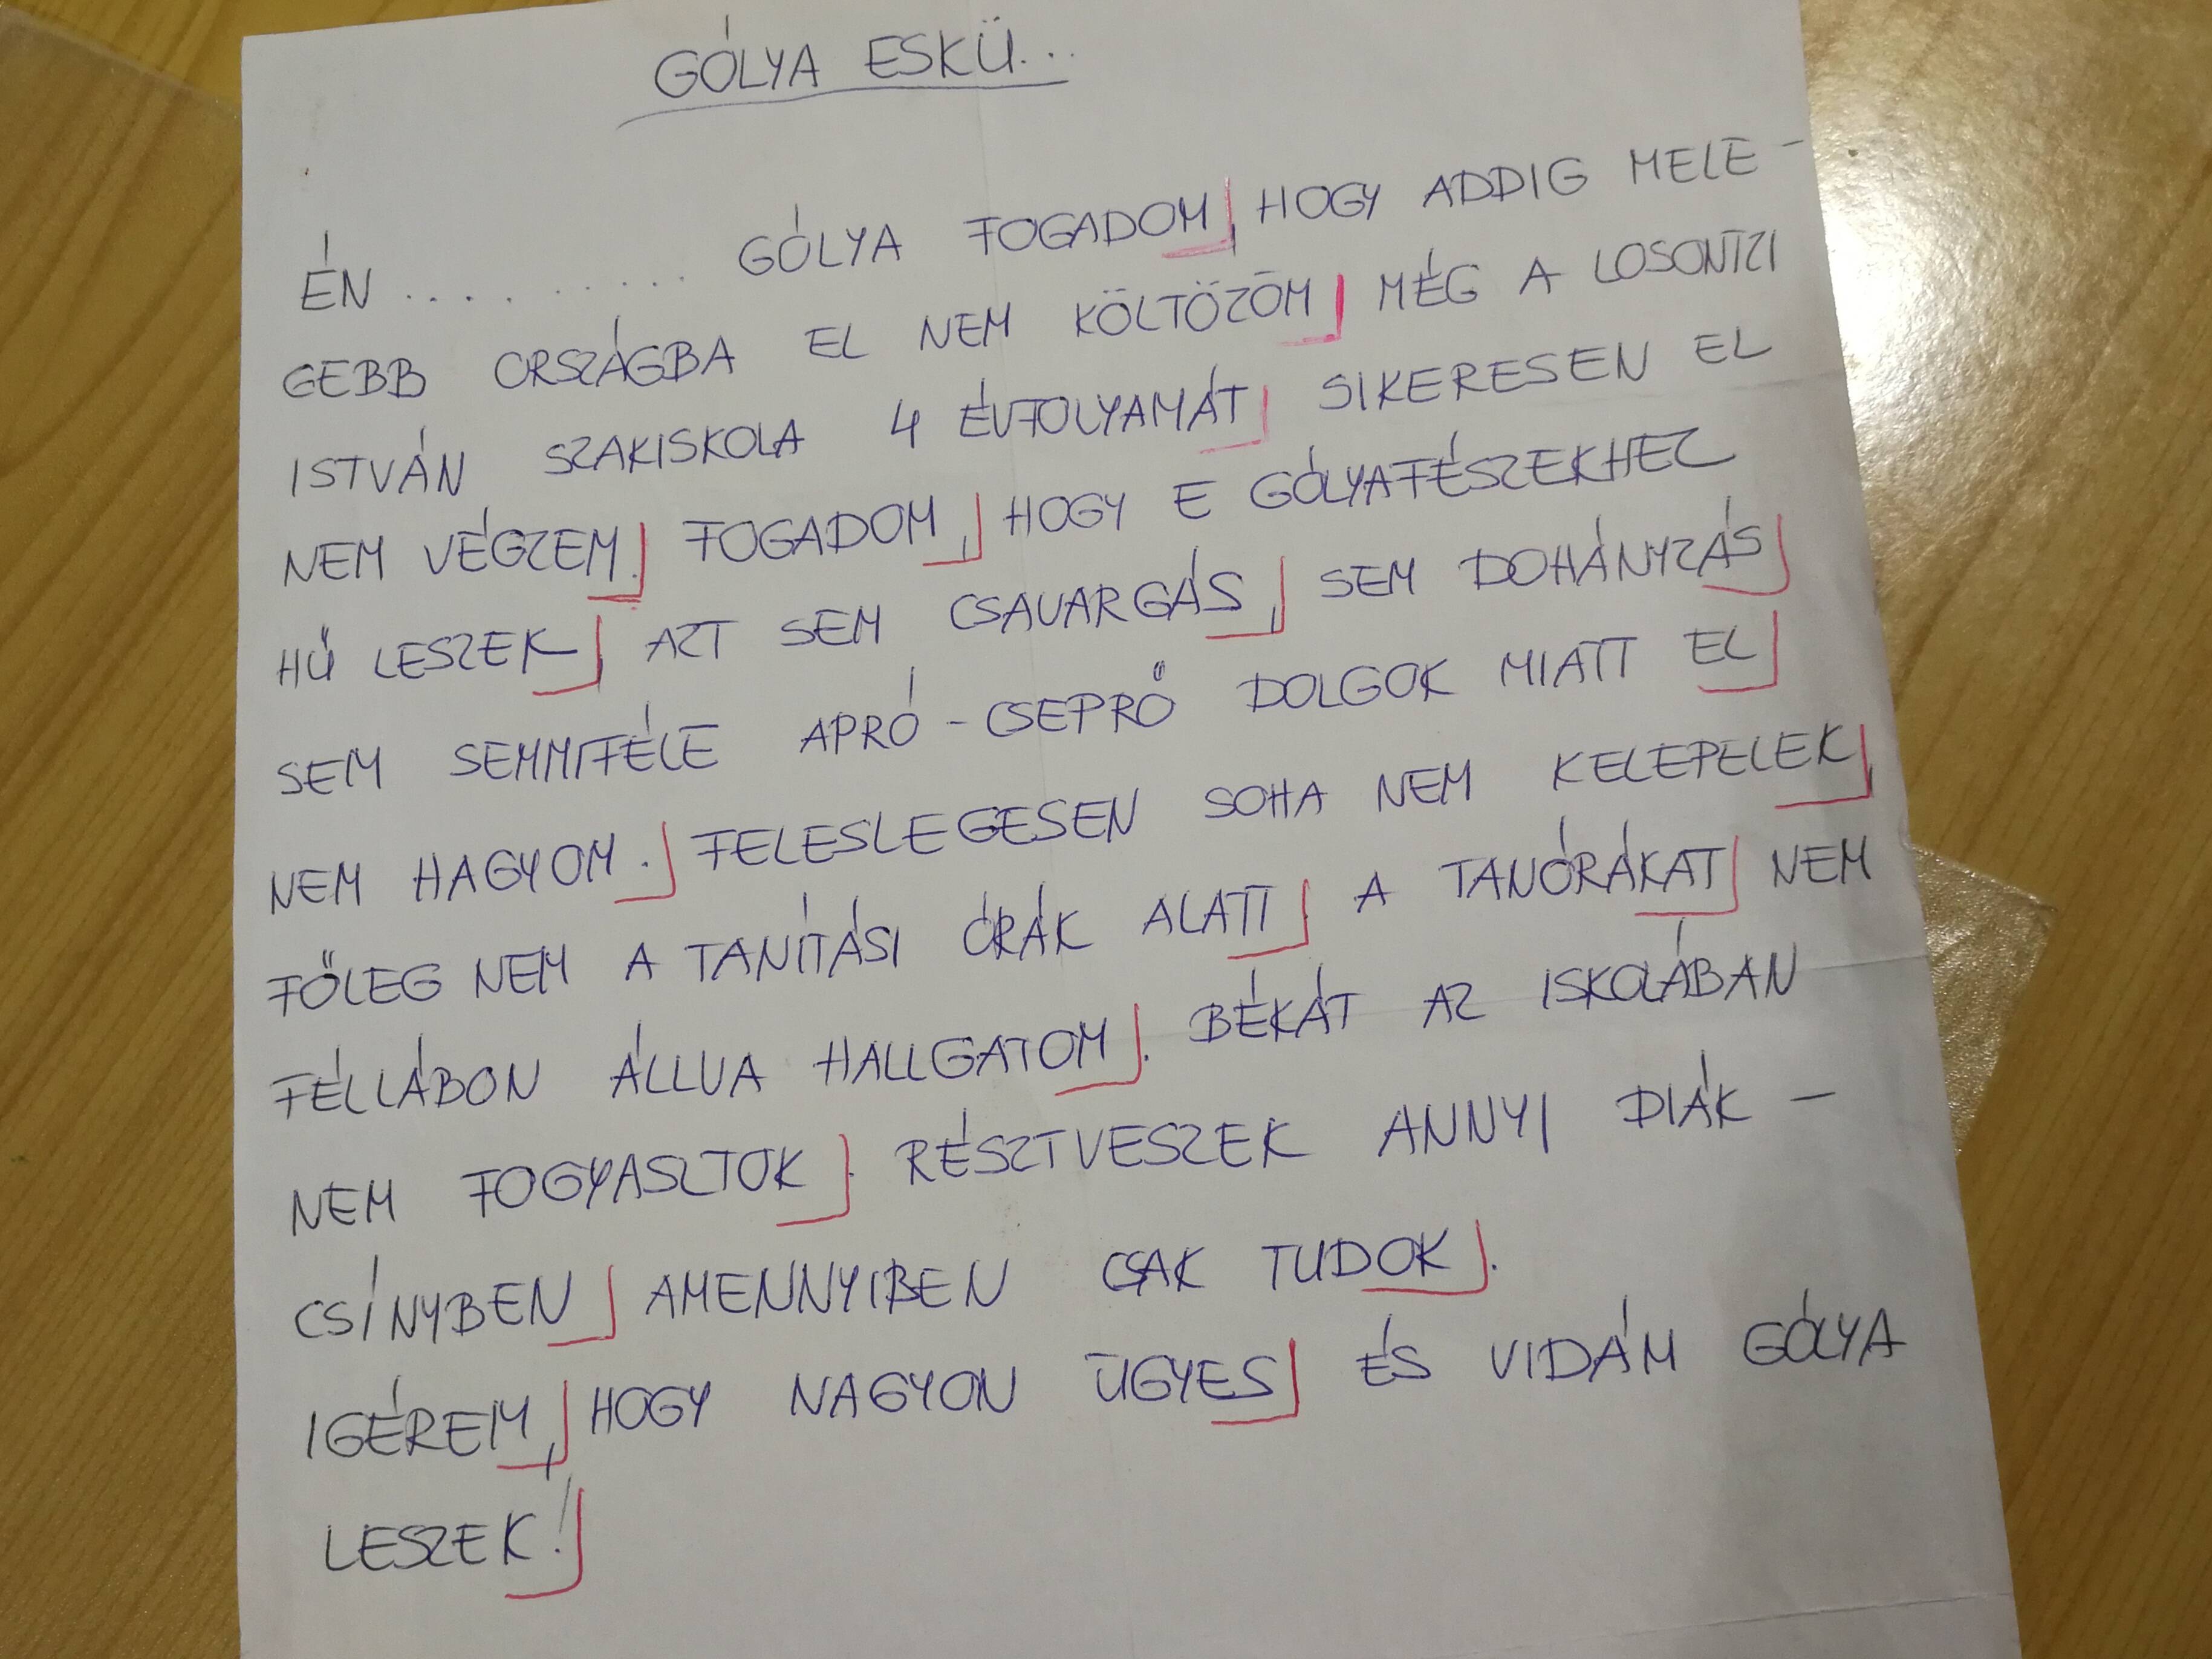 GÓLYA ESKÜ...
ÉN ......... GÓLYA FOGADOM, HOGY ADDIG MELE-
GEBB ORSZÁGBA EL NEM KÖLTÖZÖM MÉG A LOSONTZI
ISTVÁN SZAKISKOLA 4 ÉVFOLYAMÁT SIKERESEN EL
NEM VÉGZEM. FOGADOM, HOGY E GÓLYAFÉSZEKHEZ
HŰ LESZEK, AZT SEM CSAVARGÁS, SEM DOHÁNYZÁS
SEM SEMMIFÉLE APRÓ-CSEPRŐ DOLGOK MIATT EL
NEM HAGYOM. FELESLEGESEN SOHA NEM KELEPELEK,
FŐLEG NEM A TANÍTÁSI ÓRÁK ALATT. A TANÓRÁKAT NEM
FÉLLÁBON ÁLLVA HALLGATOM. BÉKÁT AZ ISKOLÁBAN
NEM FOGYASZTOK. RÉSZTVESZEK ANNYI DIÁK-
CSÍNYBEN AMENNYIBEN CSAK TUDOK.
IGÉREM, HOGY NAGYON ÜGYES ÉS VIDÁM GÓLYA
LESZEK!